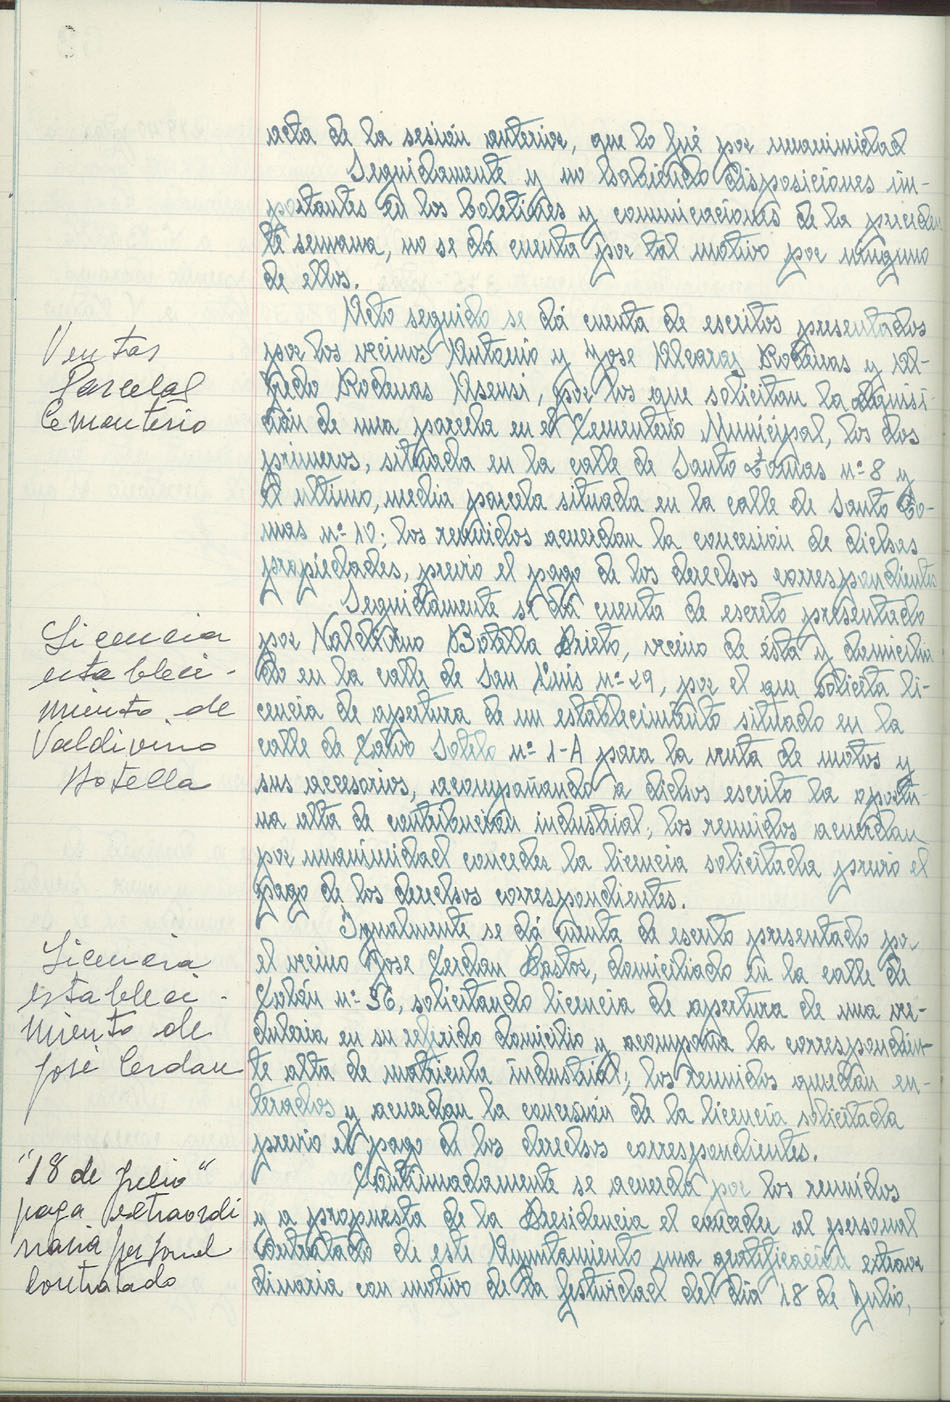 acta de la sesión anterior, que lo fué por unanimidad
Seguidamente y no habiendo disposiciones im-
portantes en los boletines y comunicaciones de la preceden
te semana, no se dá cuenta por tal motivo por ninguno
de ellos.
Acto seguido se dá cuenta de escritos presentados
Ventas
Parcelas
Cementerio
por los vecinos Antonio y Jose Alcaraz Rodenas y Al-
fredo Rodenas Asensi, por los que solicitan la adquisi-
ción de una parcela en el Cementerio Municipal, los dos
primeros, situada en la calle de Santo Tomas nº 8 y
el ultimo, media parcela situada en la calle de Santo To-
mas nº 10; los reunidos acuerdan la concesión de dichas
propiedades, previo el pago de los derechos correspondientes
Seguidamente se dá cuenta de escrito presentado
Licencia
estableci-
miento de
Valdivino
Botella
por Valdivino Botella Prieto, vecino de ésta y domicilia
do en la calle de San Luis nº 29, por el que solicita li-
cencia de apertura de un establecimiento situado en la
calle de Calvo Sotelo nº 1-A para la venta de motos y
sus accesorios, acompañando a dichos escrito la oportu-
na alta de contribución industrial; los reunidos acuerdan
por unanimidad conceder la licencia solicitada previo el
pago de los derechos correspondientes.
Igualmente se dá cuenta de escrito presentado por
Licencia
estableci-
miento de
José Cerdan
el vecino Jose Cerdan Pastor, domiciliado en la calle de
Colón nº 36, solicitando licencia de apertura de una
en su referido domicilio y acompaña la correspondien-
te alta de matricula industrial; los reunidos quedan en-
terados y acuerdan la concesión de la licencia solicitada
previo el pago de los derechos correspondientes.
"18 de Julio"
paga extraordi
naria personal
contratado
Continuadamente se acuerda por los reunidos
y a propuesta de la Presidencia el conceder al personal
contratado de este Ayuntamiento una gratificación extraor
dinaria con motivo de la festividad del día 18 de Julio,